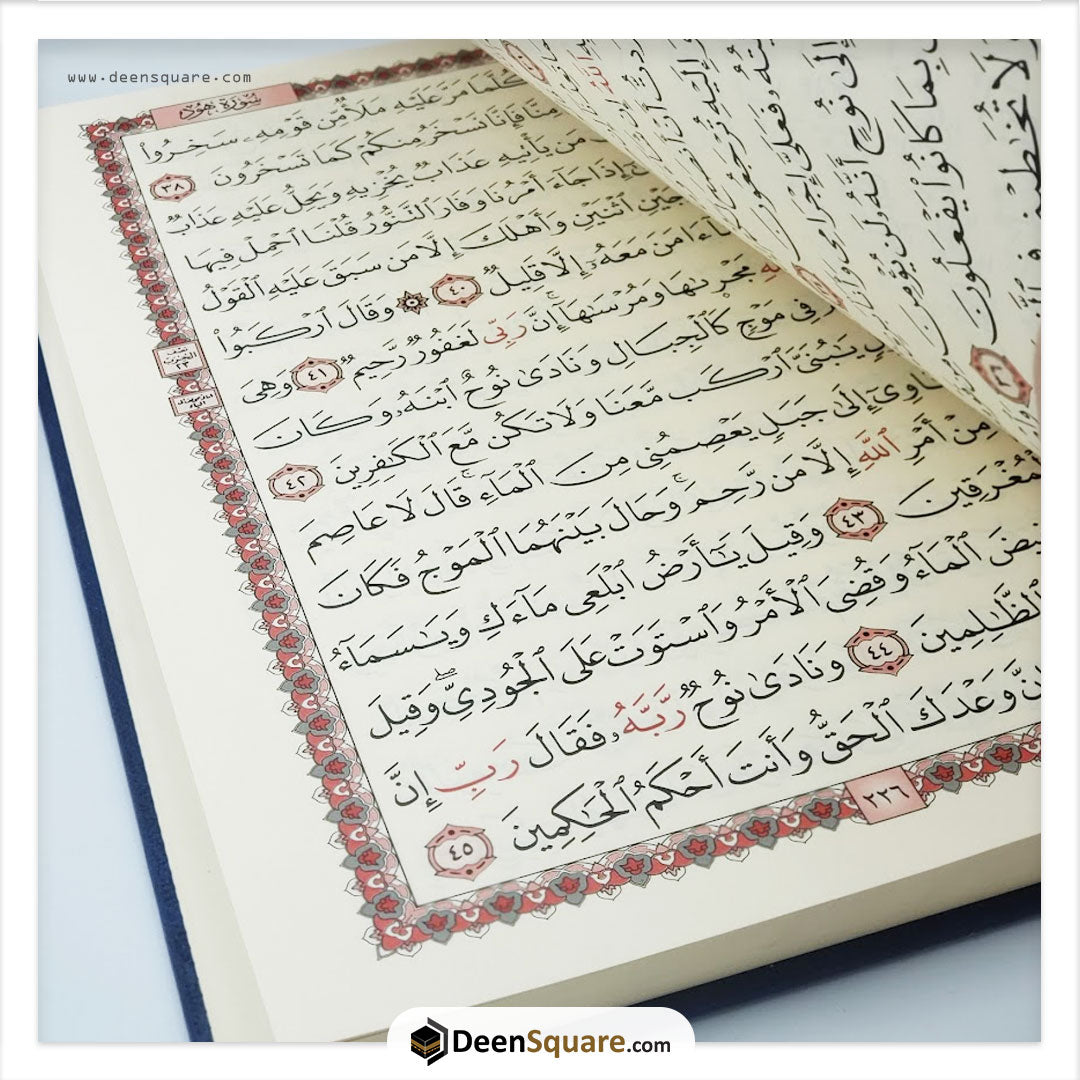 www.deensquare.com
سُورَةُ هُودٍ
كُلَّمَا مَرَّ عَلَيْهِ مَلَأٌ مِّن قَوْمِهِۦ سَخِرُوا۟
مِنَّا فَإِنَّا نَسْخَرُ مِنكُمْ كَمَا تَسْخَرُونَ ٣٨
مَن يَأْتِيهِ عَذَابٌ يُخْزِيهِ وَيَحِلُّ عَلَيْهِ عَذَابٌ
إِذَا جَآءَ أَمْرُنَا وَفَارَ ٱلتَّنُّورُ قُلْنَا ٱحْمِلْ فِيهَا
جَيْنِ ٱثْنَيْنِ وَأَهْلَكَ إِلَّا مَن سَبَقَ عَلَيْهِ ٱلْقَوْلُ
ءَامَنَ مَعَهُۥٓ إِلَّا قَلِيلٌ ٤٠ ۞ وَقَالَ ٱرْكَبُوا۟
مَجْر۪ىٰهَا وَمُرْسَىٰهَآ ۚ إِنَّ رَبِّى لَغَفُورٌ رَّحِيمٌ ٤١ وَهِىَ
فِى مَوْجٍ كَٱلْجِبَالِ وَنَادَىٰ نُوحٌ ٱبْنَهُۥ وَكَانَ
يَٰبُنَىَّ ٱرْكَب مَّعَنَا وَلَا تَكُن مَّعَ ٱلْكَٰفِرِينَ ٤٢
اوِىٓ إِلَىٰ جَبَلٍ يَعْصِمُنِى مِنَ ٱلْمَآءِ ۚ قَالَ لَا عَاصِمَ
مِنْ أَمْرِ ٱللَّهِ إِلَّا مَن رَّحِمَ ۚ وَحَالَ بَيْنَهُمَا ٱلْمَوْجُ فَكَانَ
لْمُغْرَقِينَ ٤٣ وَقِيلَ يَٰٓأَرْضُ ٱبْلَعِى مَآءَكِ وَيَٰسَمَآءُ
يضَ ٱلْمَآءُ وَقُضِىَ ٱلْأَمْرُ وَٱسْتَوَتْ عَلَى ٱلْجُودِىِّ ۖ وَقِيلَ
ٱلظَّٰلِمِينَ ٤٤ وَنَادَىٰ نُوحٌ رَّبَّهُۥ فَقَالَ رَبِّ إِنَّ
نَّ وَعْدَكَ ٱلْحَقُّ وَأَنتَ أَحْكَمُ ٱلْحَٰكِمِينَ ٤٥
٢٢٦
وَإِلَيْهِ تُرْجَعُونَ
فَعَلَىَّ إِجْرَامِى
إِلَىٰ نُوحٍ أَنَّهُۥ لَن يُؤْمِنَ
بِمَا كَانُوا۟ يَفْعَلُونَ ٣٦
لَا تُخَٰطِبْنِى فِى
DeenSquare.com